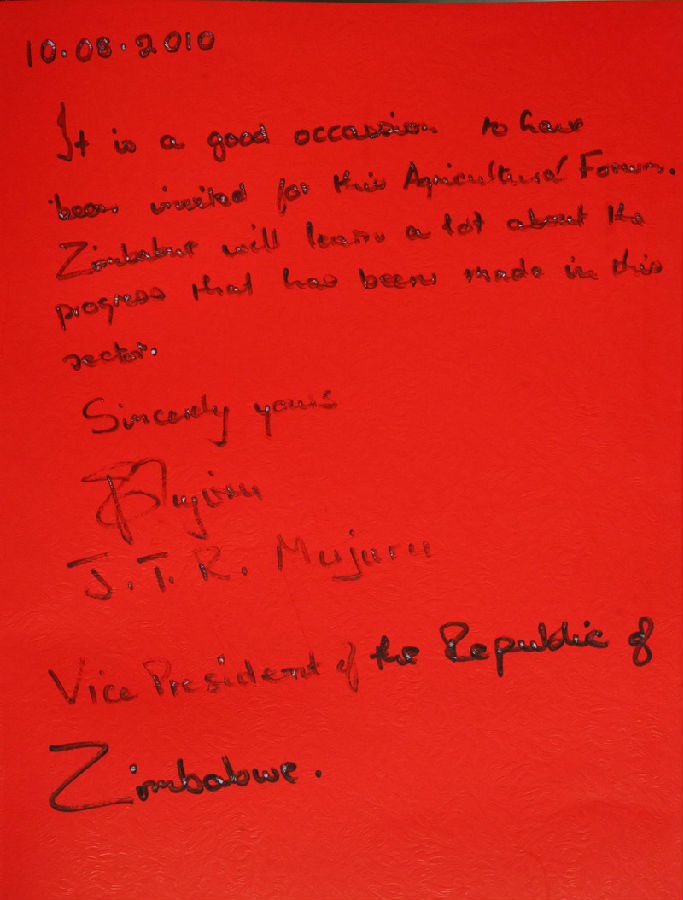 10.08.2010
It is a good occassion to have
been invited for this Agricultural Forum.
Zimbabwe will learn a lot about the
progress that has been made in this
sector.
Sincerely yours
Mujuru
J.T.R. Mujuru
Vice President of the Republic of
Zimbabwe.